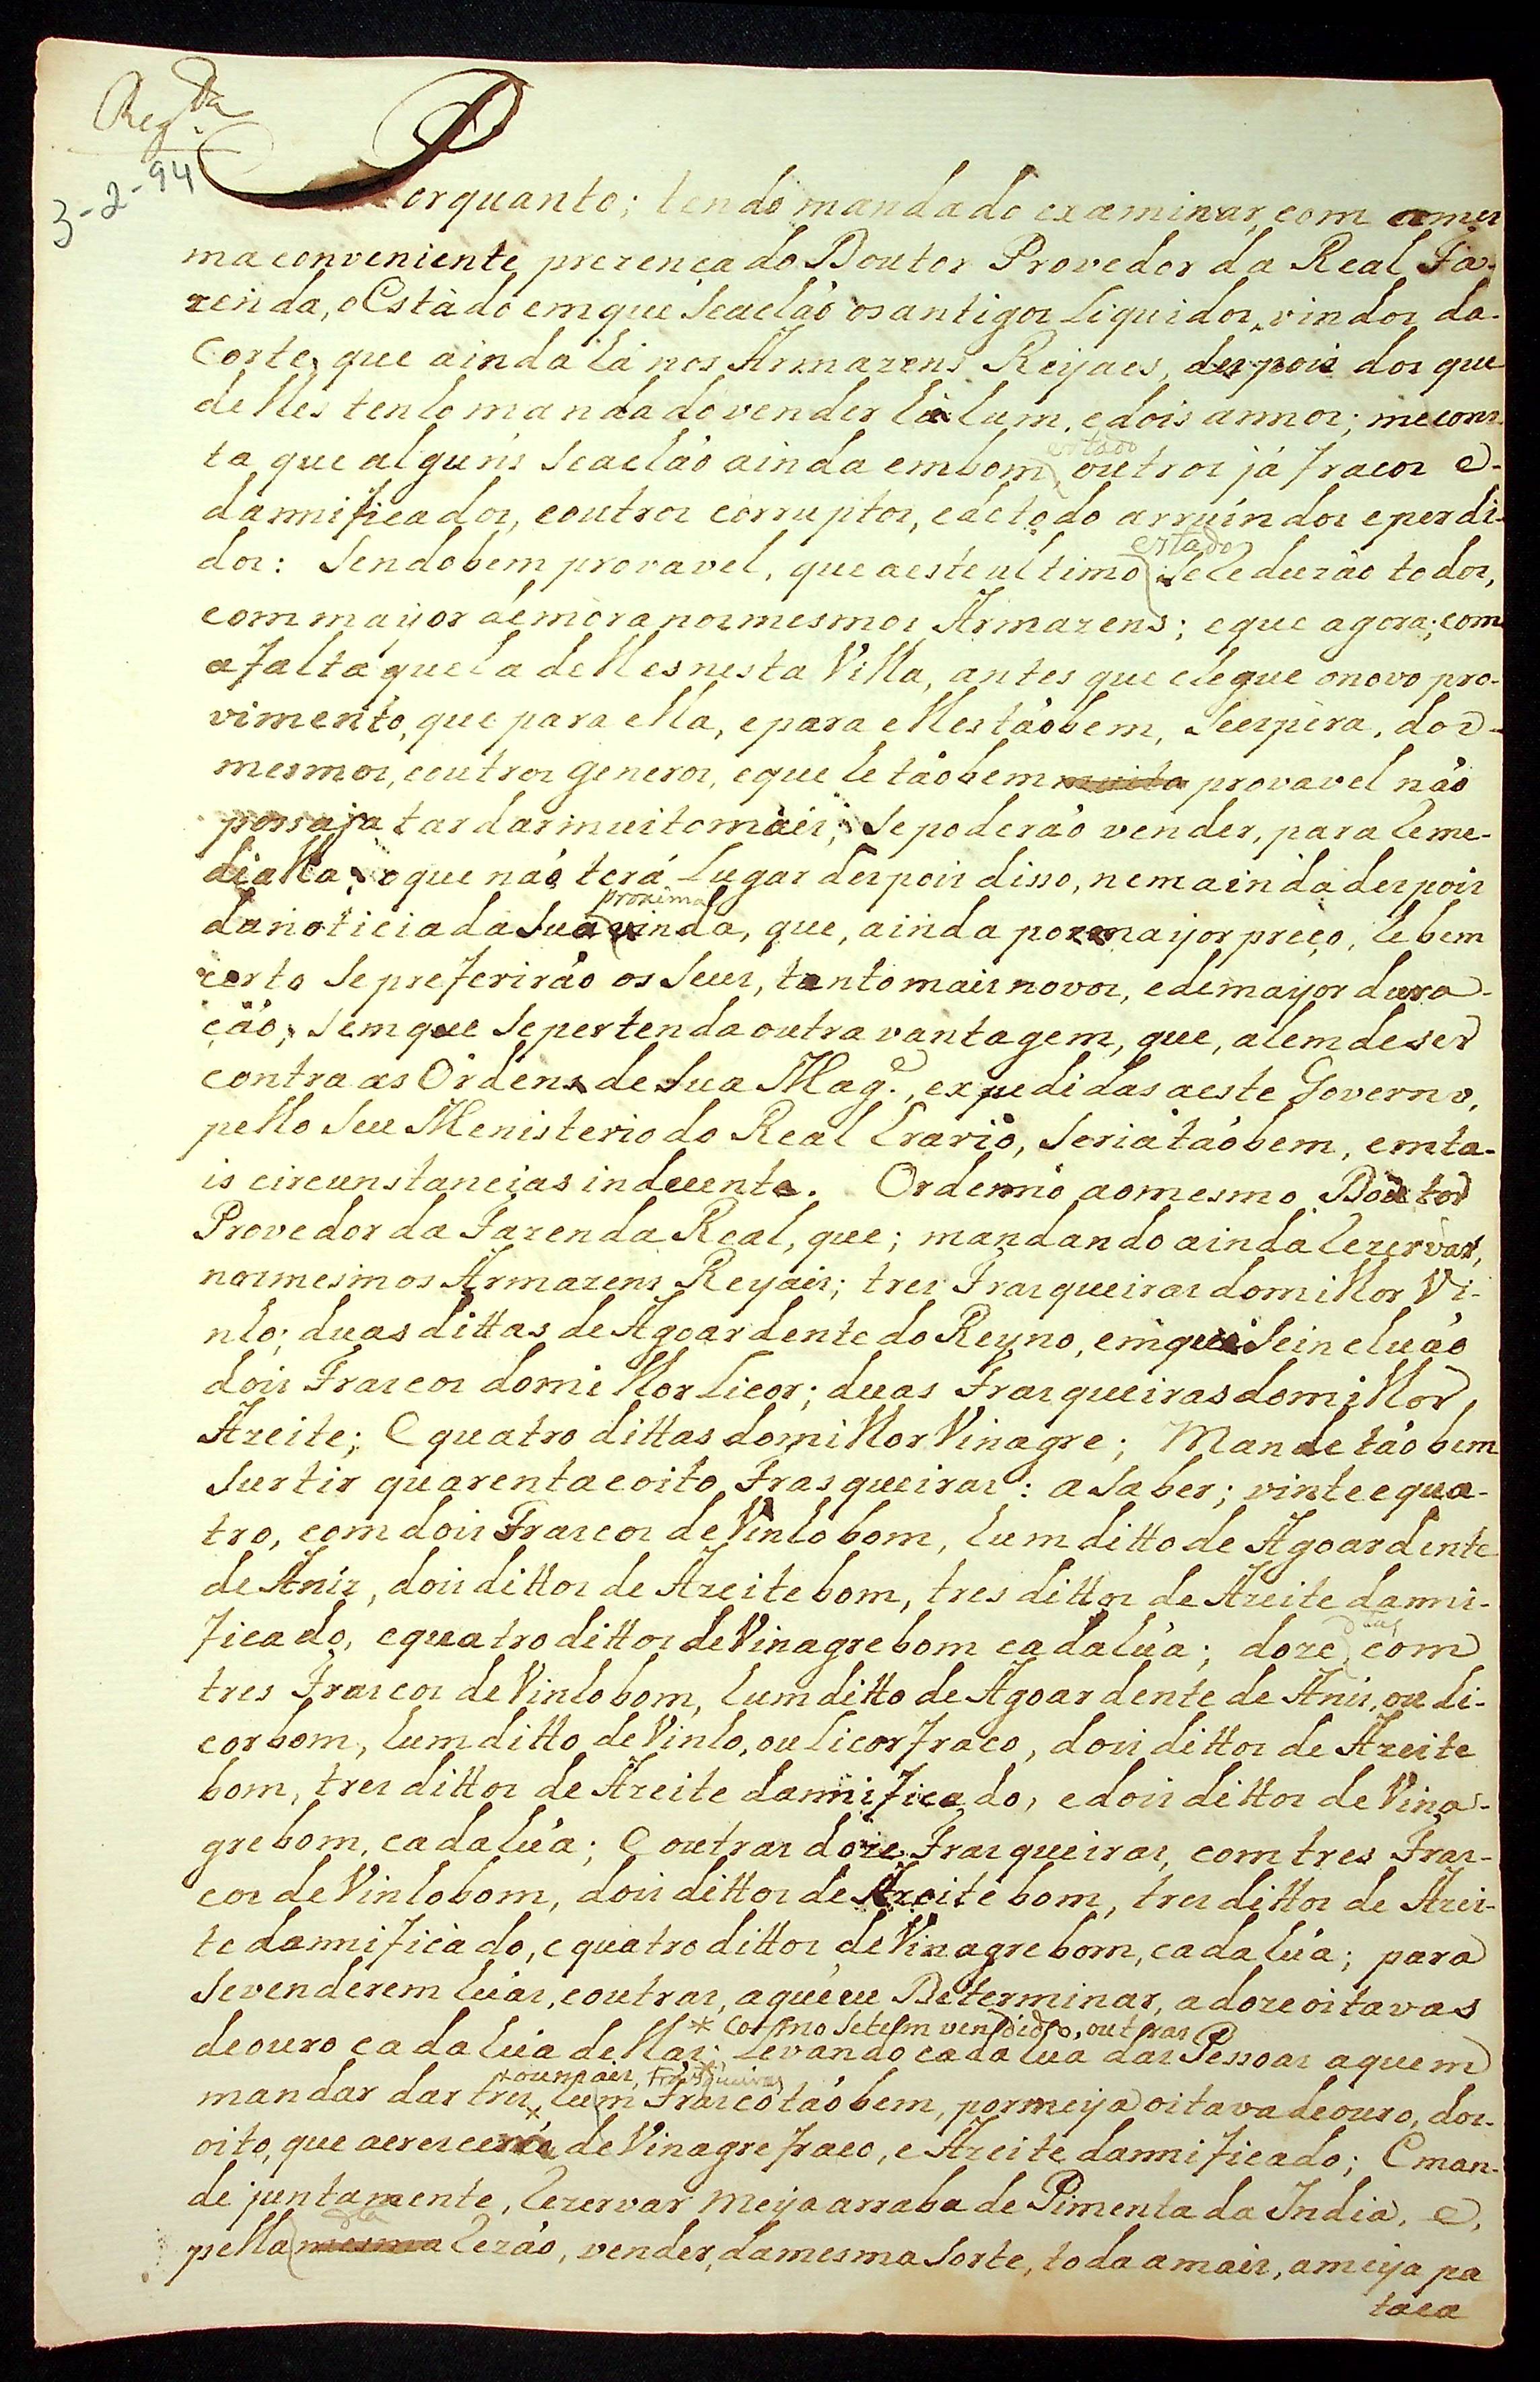 Reg.da
3-2-94
Porquanto; tendo mandado examinar, com a mes
ma conveniente prezença do Doutor Provedor da Real Fa-
zenda, o Estado em que se achão os antigos Liquidos, vindos da
Corte, que ainda há nos Armazens Reyaes, despois dos que
delles tenho mandado vender há hum, e dois annos; me cons-
ta que alguns se achão ainda em bom, outros já fracos e
estado
damnificados, e outros corruptos, e de todo arruindos e perdi-
dos: Sendo bem provavel, que a este ultimo se reduzão todos,
estado
com mayor demora nos mesmos Armazens; e que agora; com
a falta que ha delles nesta Villa, antes que chegue o novo pro-
vimento, que para ella, e para elles tãobem, se espera, dos
mesmos, e outros generos, e que he tãobem muito provavel não
possa já tardar muito mais; se poderão vender, para reme-
dialla; o que não terá lugar despois disso, nem ainda despois
da noticia da sua vinda, que, ainda por mayor preço, he bem
proxima
certo se preferirão os seus, tanto mais novos, e de mayor dura-
ção; sem que se pertenda outra vantagem, que, alem de ser
contra as Ordens de Sua Mag.e, expedidas a este Governo,
pello seu Menisterio do Real Erario, seria tãobem, em ta-
is circunstancias indecente. Ordenno ao mesmo Doutor
Provedor da Fazenda Real, que; mandando ainda rezervar,
nos mesmos Armazens Reyais; tres Frasqueiras do milhor Vi-
nho; duas dittas de Agoardente do Reyno, em que se incluão
dois Frascos do milhor Licor; duas Frasqueiras do milhor
Azeite; E quatro dittas do milhor Vinagre; Mande tãobem
surtir quarenta e oito Frasqueiras: a saber; vinte e qua-
tro, com dois Frascos de Vinho bom, hum ditto de Agoardente
de Anis, dois dittos de Azeite bom, tres dittos de Azeite damni-
ficado, e quatro dittos de Vinagre bom cada hũa; doze com
dittas
tres Frascos de Vinho bom, hum ditto de Agoardente de Anis, ou Li-
cor bom, hum ditto de Vinho, ou Licor fraco, dois dittos de Azeite
bom, tres dittos de Azeite damnificado, e dois dittos de Vina-
gre bom, cada hũa; E outras doze Frasqueiras, com tres Fras-
cos de Vinho bom, dois dittos de Azeite bom, tres dittos de Azei-
te damnificado, e quatro dittos de Vinagre bom, cada hũa; para
se venderem huas, e outras, a que eu Determinar, a doze oitavas
* como se tem vendido, outras
de ouro cada hũa dellas; * Levando cada hũa das Pessoas a quem
* ou mais, frasqueiras
mandar dar tres, * hum Frasco tãobem, por meya oitava de ouro, dos
oito, que acrescerem de Vinagre fraco, e Azeite damnificado; E man-
de juntamente, rezervar meya arraba de Pimenta da India, e,
pella mesma rezão, vender, da mesma sorte, toda a mais, a meya pa
dta
taca